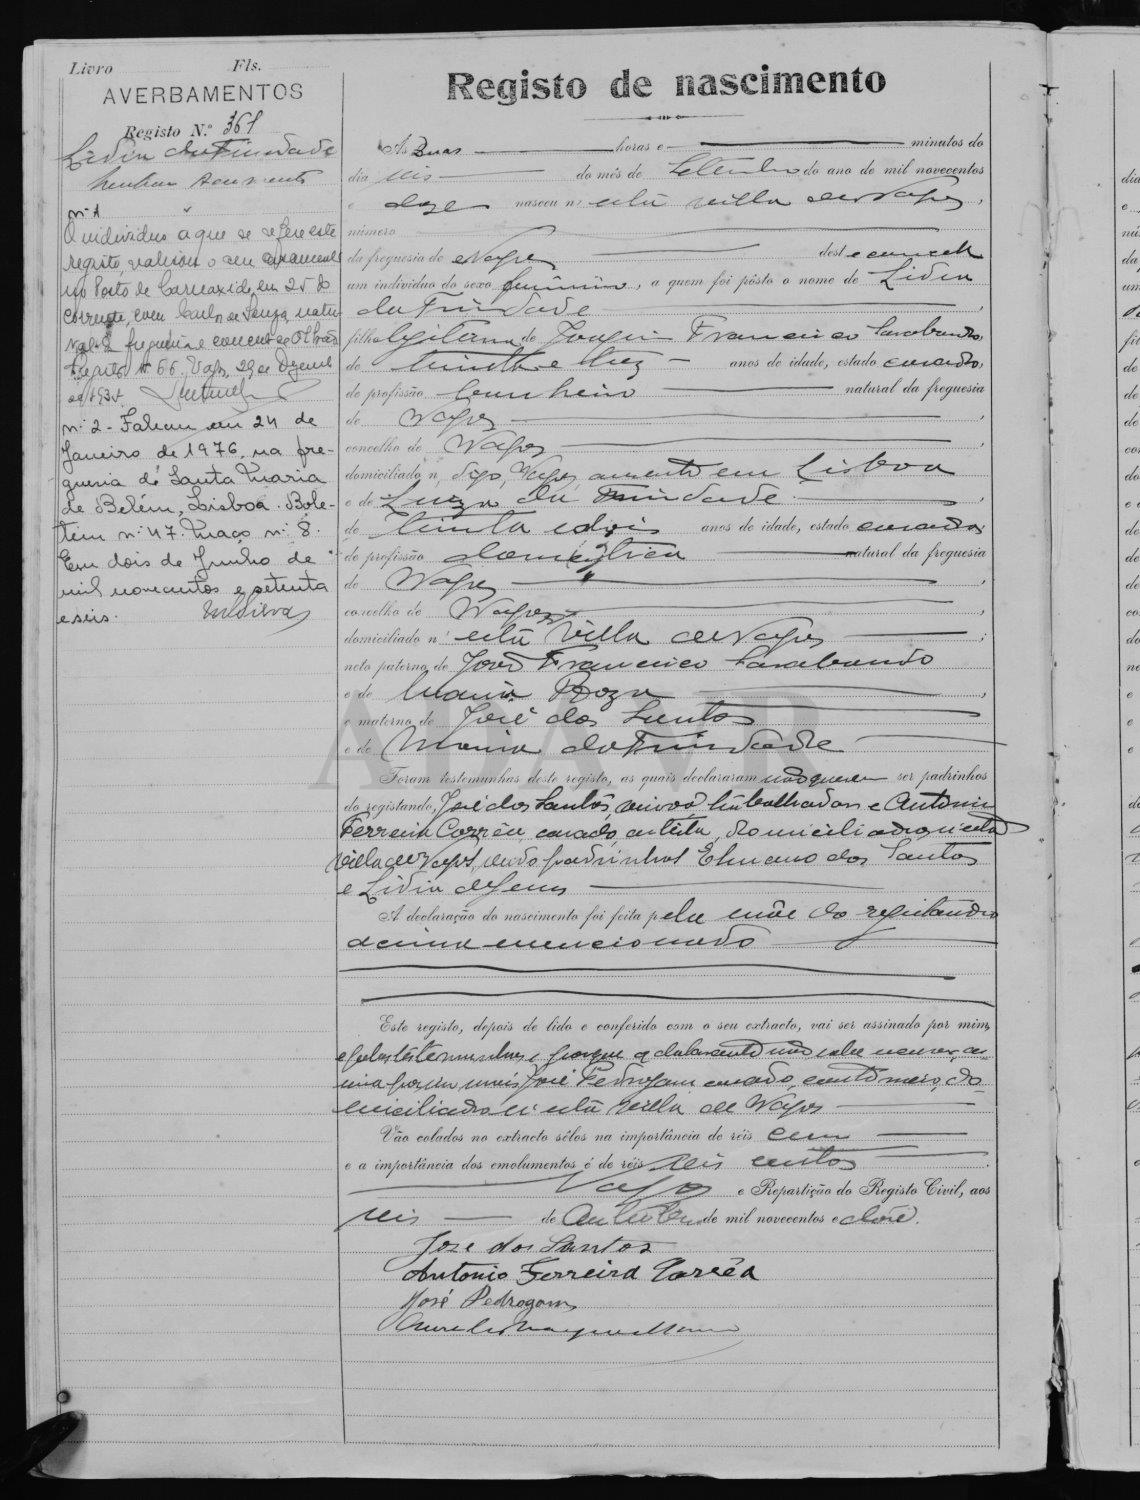 Livro Fls.
AVERBAMENTOS
Registo N.º 361
Lidia da Trindade
nenhum documento
nº 1
O individuo a que se refere este
registo, realisou o seu casamento
no Posto de Carnaxide, em 25 do
corrente, com Carlos de Souza, natu-
ral da freguesia e concelho de Olhão
Registo nº 66. Vagos, 29 de Dezembro
de 1931.
n.º 2 - Faleceu em 24 de
Janeiro de 1976, na fre-
guesia de Santa Maria
de Belém, Lisboa. Bole-
tim n.º 47. Maço n.º 8.
Em dois de Junho de
mil novecentos e setenta
e seis. MSilva
Registo de nascimento
Às duas horas e minutos do
dia seis do mês de Setembro do ano de mil novecentos
e doze nasceu n esta villa de Vagos,
número
da freguesia de Vagos deste concelho
um individuo do sexo feminino, a quem foi pôsto o nome de Lidia
da Trindade,
filha legitima de Joaquim Francisco Sarabando,
de trinta e tres anos de idade, estado casado,
de profissão natural da freguesia
de Vagos,
concelho de Vagos,
domiciliado n, digo, Vagos, ausente em Lisboa
e de Luiza da Trindade,
de trinta e dois anos de idade, estado casada,
de profissão domestica natural da freguesia
de Vagos,
concelho de Vagos,
domiciliado n esta villa de Vagos;
neto paterno de José Francisco Sarabando
e de Maria Roza,
e materno de José dos Santos
e de Maria da Trindade
Foram testemunhas deste registo, as quais declararam não querer ser padrinhos
do registando, José dos Santos, viuvo, trabalhador e Antonio
Ferreira Corrêa, casado, artista, domiciliados n'esta
villa de Vagos, sendo padrinhos Elmano dos Santos
e Lidia de Jesus
A declaração do nascimento foi feita pela mãe do registando
acima mencionado
Este registo, depois de lido e conferido com o seu extracto, vai ser assinado por mim,
e pelas testemunhas e porque a declarante não sabe escrever, as-
sina por ela José Pedrogam, casado, do-
miciliado n'esta villa de Vagos
Vão colados no extracto sêlos na importância de réis cem
e a importância dos emolumentos é de réis seis centos
Vagos e Repartição do Registo Civil, aos
seis de Outubro de mil novecentos e doze.
Jose dos Santos
Antonio Ferreira Corrêa
José Pedrogam
ADAVR